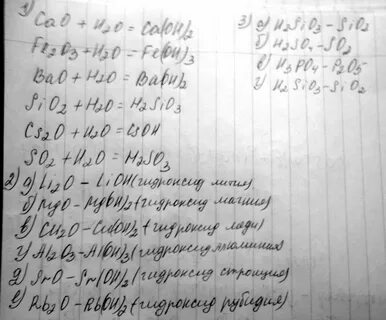 1)
CaO + H2O = Ca(OH)2
Fe2O3 + H2O = Fe(OH)3
BaO + H2O = Ba(OH)2
SiO2 + H2O = H2SiO3
Cs2O + H2O = CsOH
SO2 + H2O = H2SO3
2) а) Li2O - LiOH (гидроксид лития)
б) MgO - Mg(OH)2 (гидроксид магния)
в) CuO - Cu(OH)2 (гидроксид меди)
г) Al2O3 - Al(OH)3 (гидроксид алюминия)
д) SrO - Sr(OH)2 (гидроксид стронция)
е) Rb2O - Rb(OH)2 (гидроксид рубидия)
3) а) H2SiO3 - SiO2
б) H2SO4 - SO2
в) H3PO4 - P2O5
г) H2SiO3 - SiO2